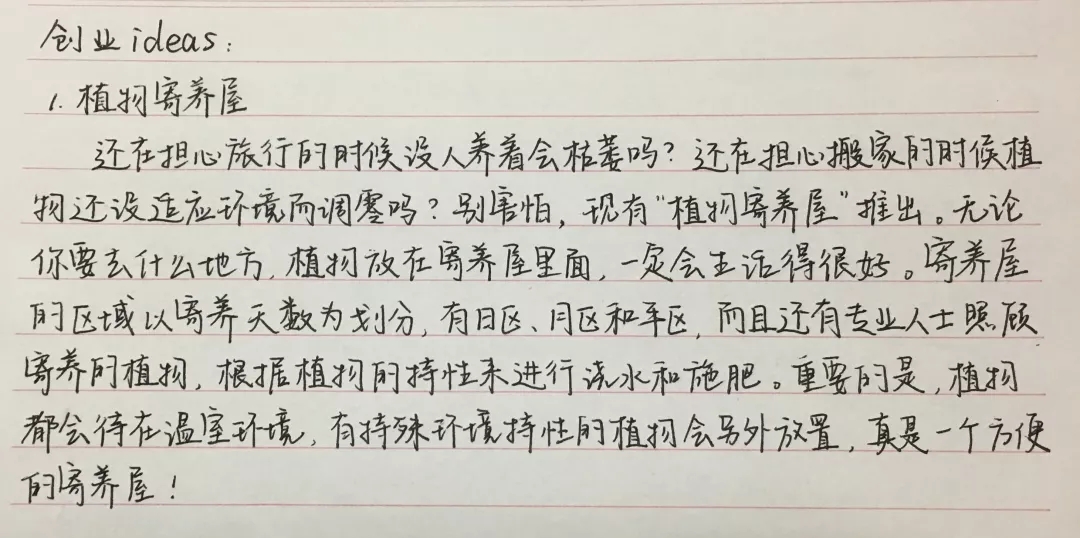 创业ideas：
1. 植物寄养屋
还在担心旅行的时候没人养着会枯萎吗？还在担心搬家的时候植
物还没适应环境而调零吗？别害怕，现有“植物寄养屋”推出。无论
你要去什么地方，植物放在寄养屋里面，一定会生活得很好。寄养屋
的区域以寄养天数为划分，有日区、月区和年区，而且还有专业人士照顾
寄养的植物，根据植物的特性来进行浇水和施肥。重要的是，植物
都会待在温室环境，有特殊环境特性的植物会另外放置，真是一个方便
的寄养屋！